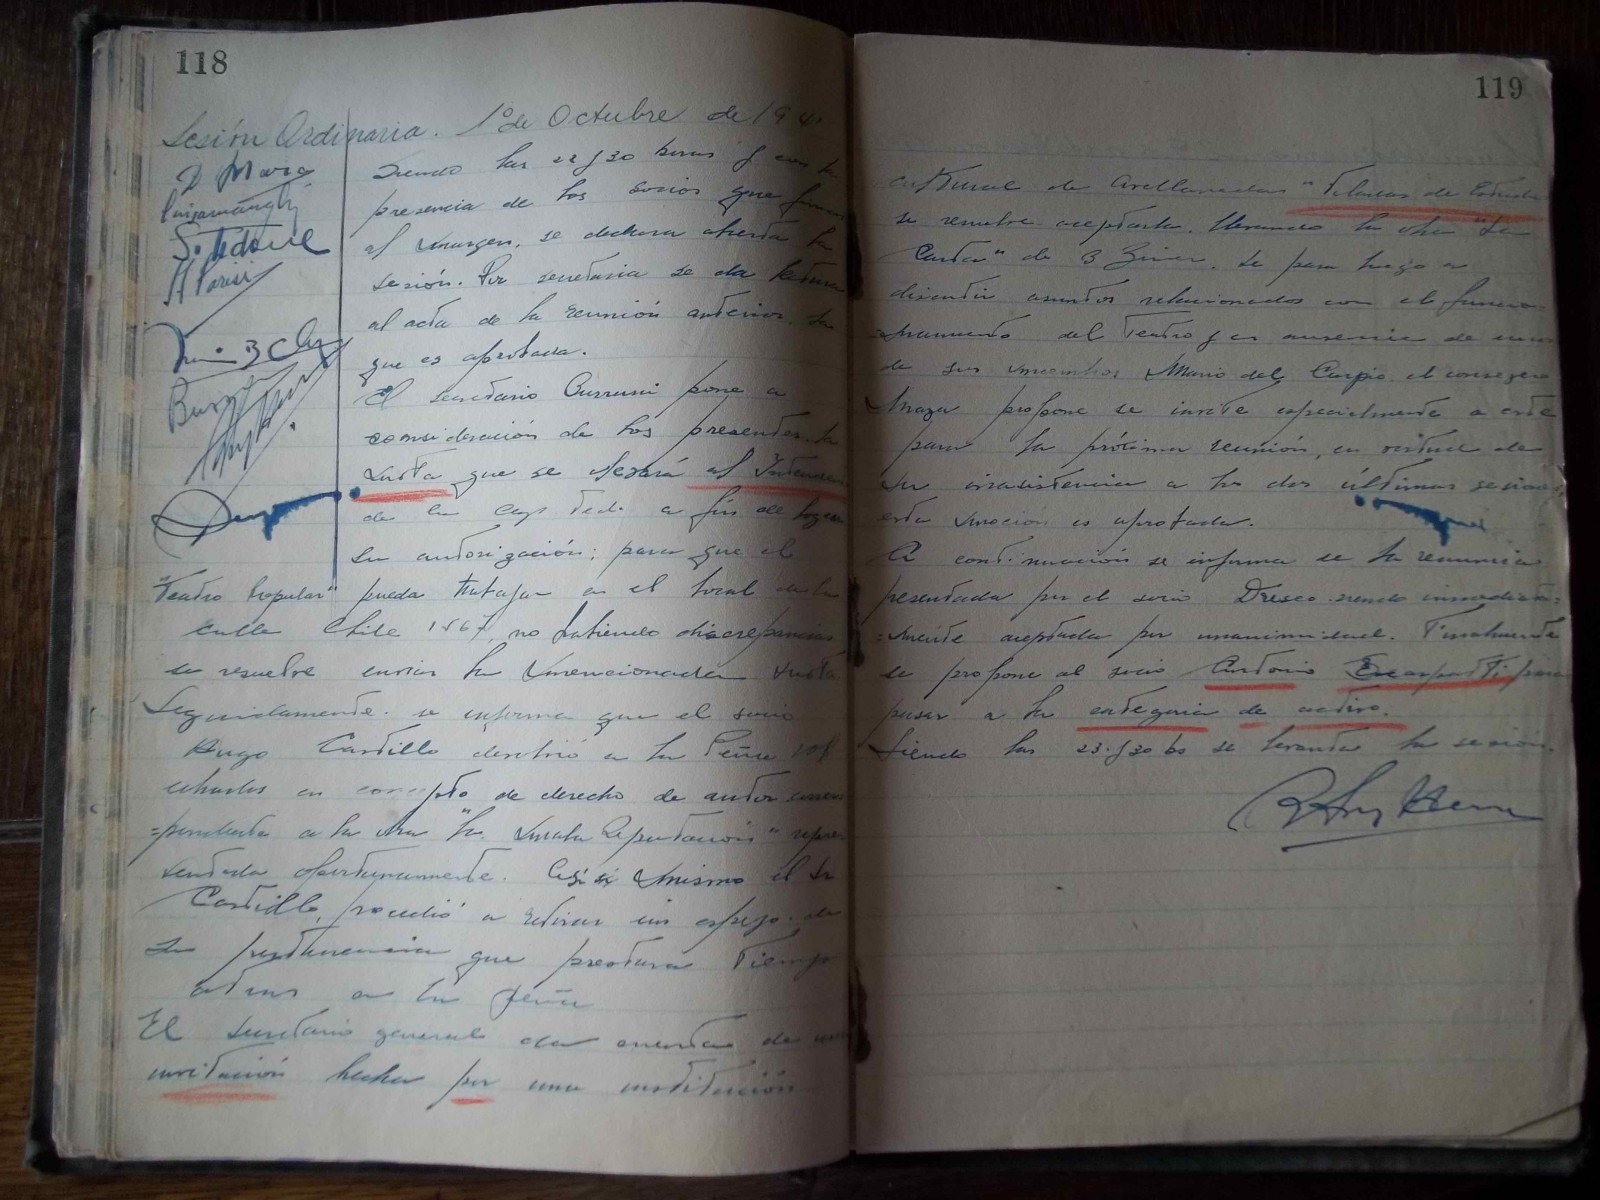 118
Sesión Ordinaria. 1º de Octubre de 194
D Maza
S. Tedone
A Parisi
Siendo las 22 y 30 horas y con la
presencia de los socios que firman
al margen, se declara abierta la
sesión. Por secretaria se da lectura
al acta de la reunión anterior, la
que es aprobada.
El secretario pone a
consideración de los presentes, la
nota que se elevará al Intendente
de la Cap. Fed. a fin de lograr
su autorización; para que el
"Teatro Popular" pueda trabajar en el local de la
calle Chile 1567, no habiendo discrepancias
se resuelve enviar la mencionada nota
Seguidamente. se informa que el socio
Hugo Castillo a la Peña
en concepto de derecho de autor corres
=pondiente a la obra "La mala reputación" repre
sentada oportunamente. Así si mismo el Sr
Castillo, procedió a retirar un espejo de
su pertenencia que prestara tiempo
atras a la peña
El secretario general da cuenta de una
invitación hecha por una institución
119
cultural de Avellaneda "Tablas de
se resuelve aceptarla, llevando la obra "La
Carta" de B. Se pasa luego a
discutir asuntos relacionados con el funcio
=namiento del Teatro y en ausencia de uno
de sus miembros Mario del Carpio, el consejero
Maza propone se invite especialmente a este
para la próxima reunión, en virtud de
su inasistencia a las dos últimas sesiones
esta moción es aprobada.
A continuación se informa se la renuncia
presentada por el socio Dresco siendo inmediata=
=mente aceptada por unanimidad. Finalmente
se propone al socio Antonio para
pasar a la categoria de activo.
Siendo las 23 y 30 hs se levanta la sesión.